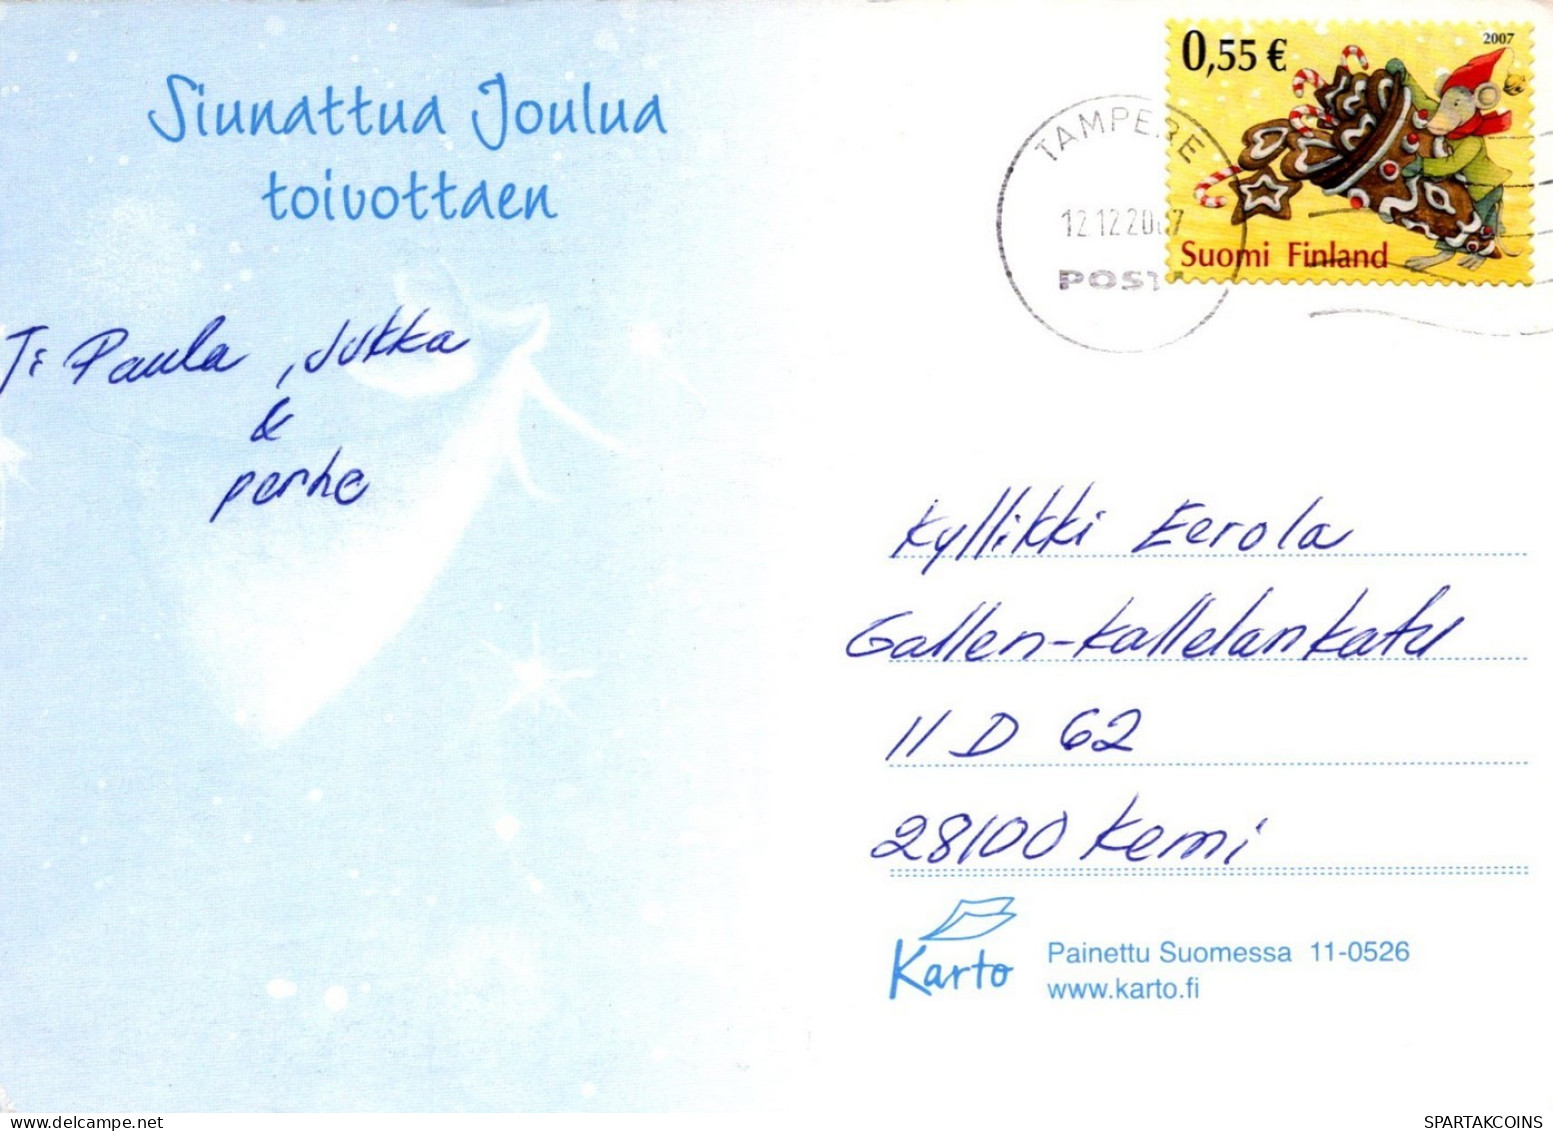 Siunattua Joulua
toivottaen
T: Paula, Jukka
&
perhe
0,55 €
2007
Suomi Finland
TAMPERE
12.12.2007
POSTI
Kyllikki Eerola
Gallen-Kallelankatu
11 D 62
28100 Kemi
Karto
Painettu Suomessa 11-0526
www.karto.fi
SPARTAKCOINS